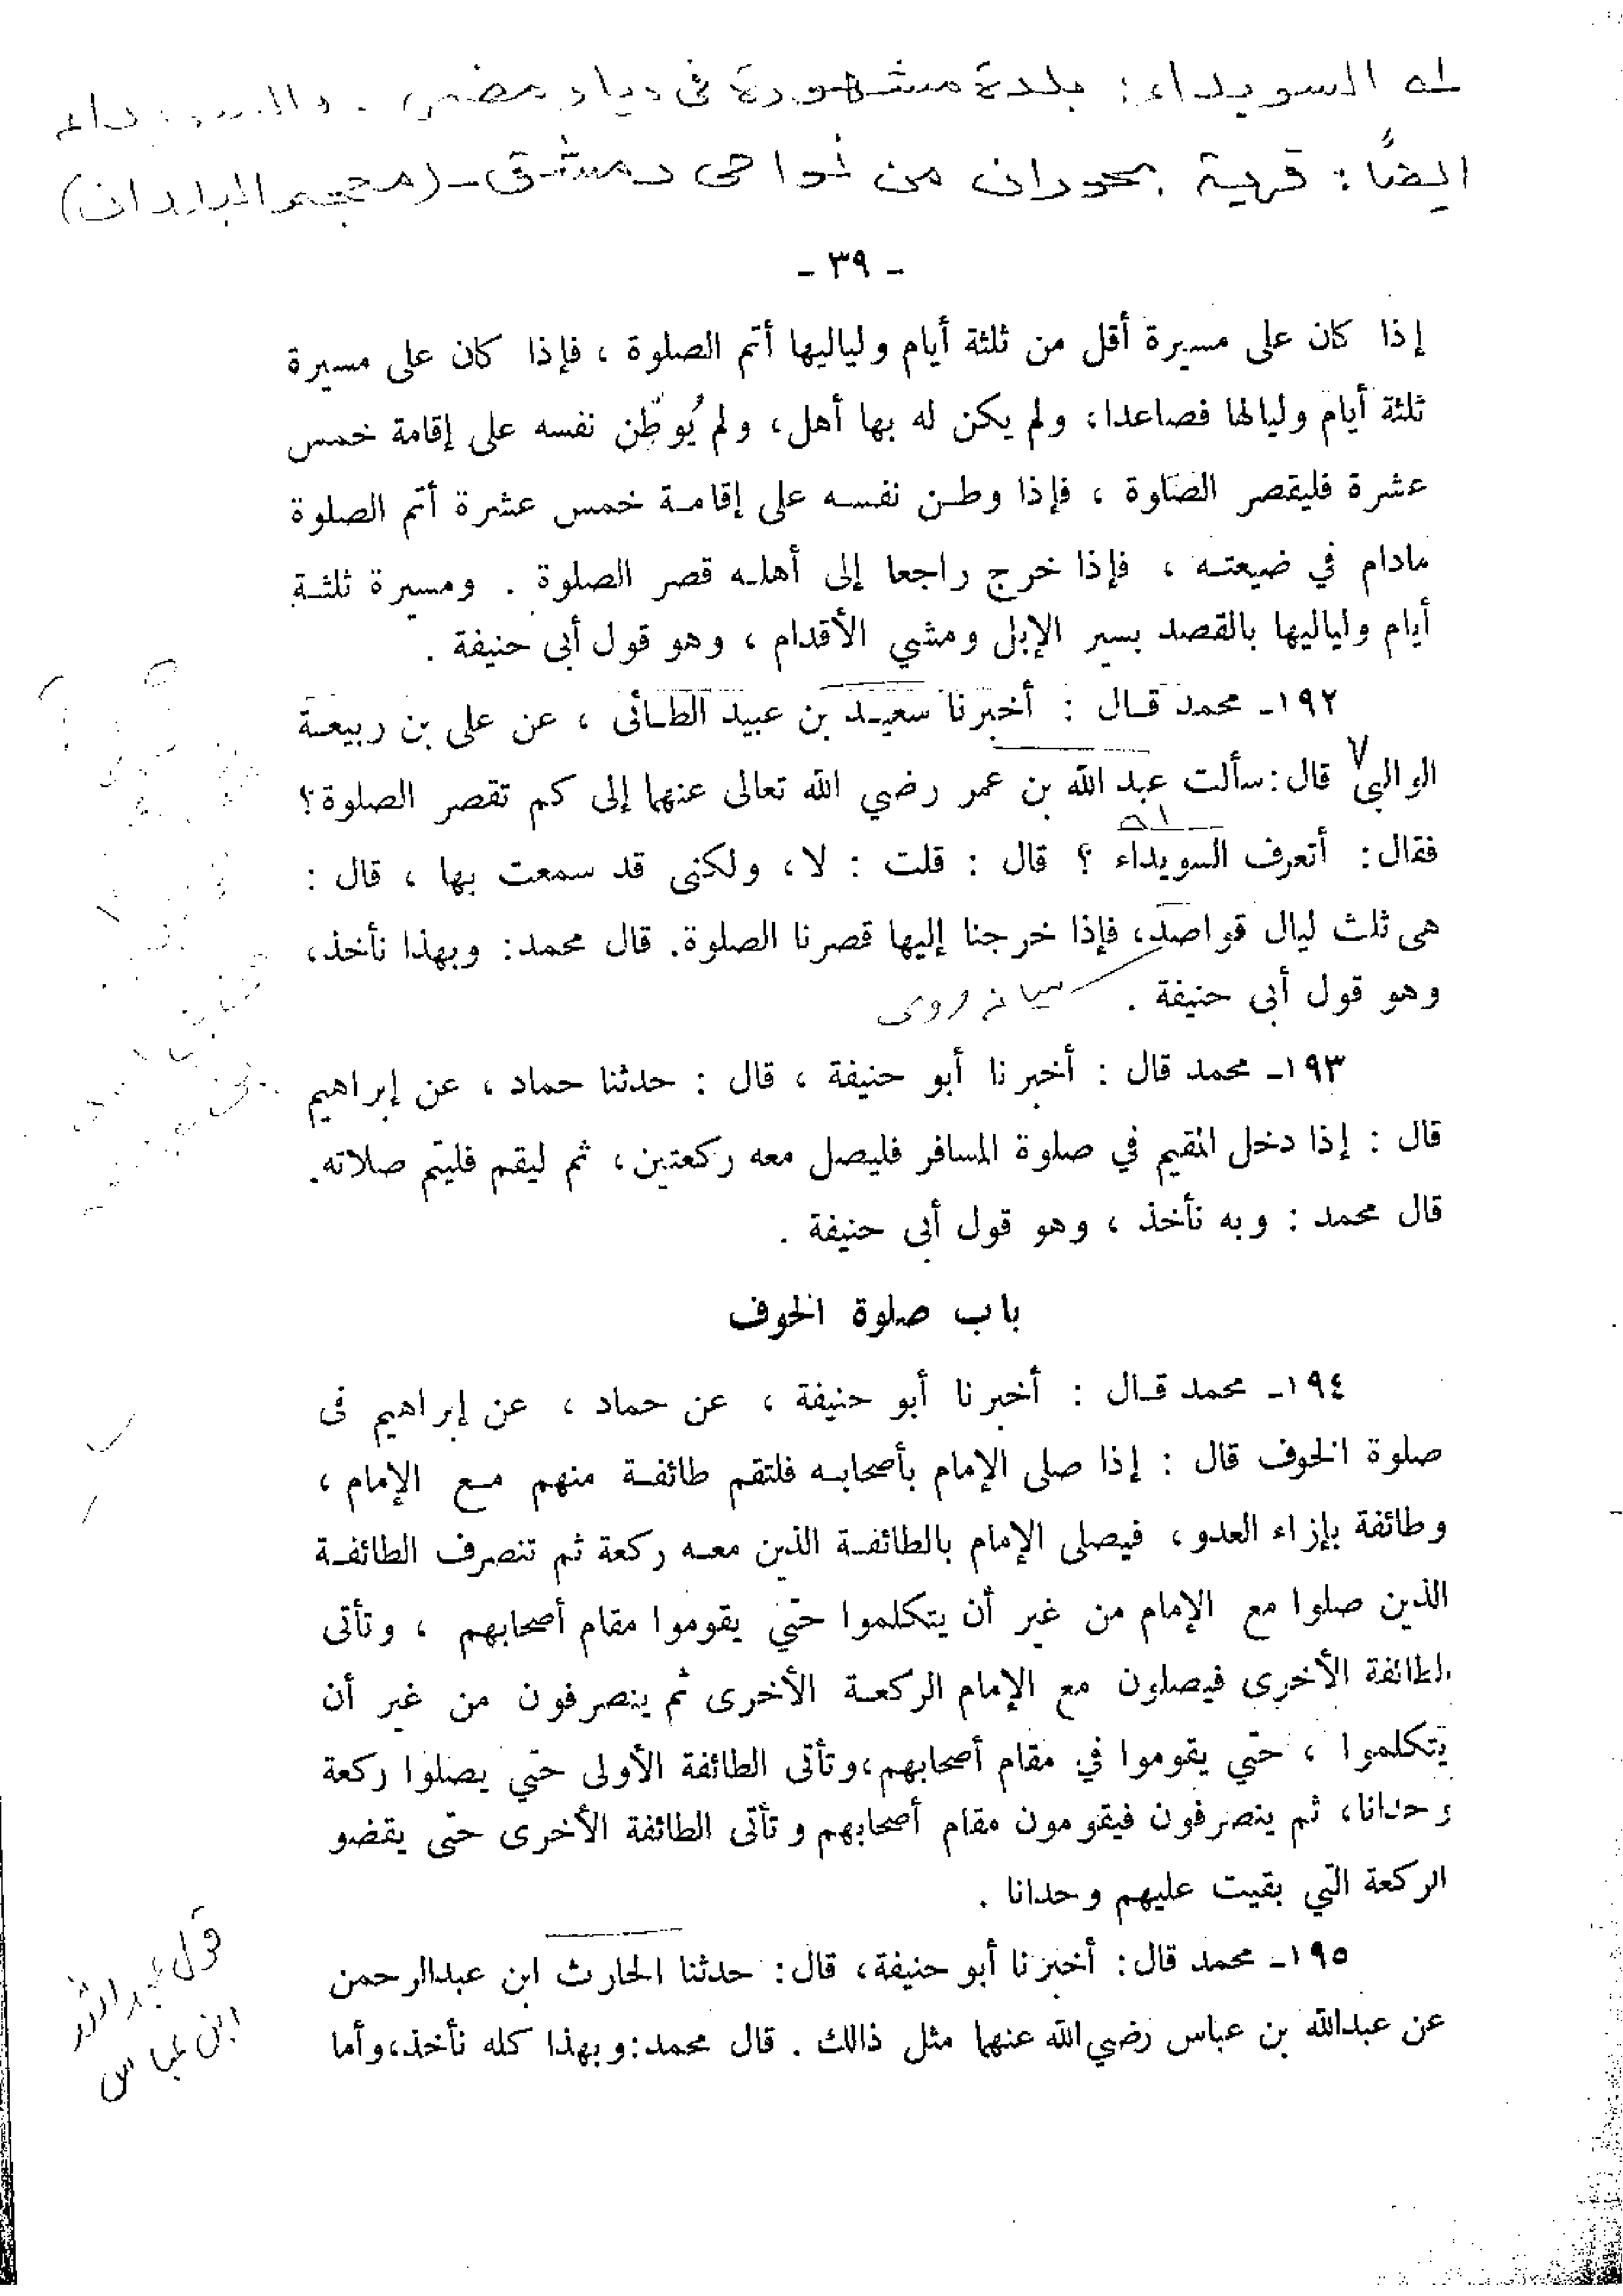 له السويداء: بلدة مشهورة في ديار مضر . والسويداء
ايضًا: قرية بحوران من نواحى دمشق-(معجم البلدان)
- ٣٩ -
إذا كان على مسيرة أقل من ثلثة أيام ولياليها أتم الصلوة ، فإذا كان على مسيرة
ثلثة أيام وليالها فصاعدا، ولم يكن له بها أهل، ولم يُوطّن نفسه على إقامة خمس
عشرة فليقصر الصلوة ، فإذا وطن نفسه على إقامة خمس عشرة أتم الصلوة
مادام في ضيعته ، فإذا خرج راجعا إلى أهله قصر الصلوة . ومسيرة ثلثة
أيام ولياليها بالقصد بسير الإبل ومشي الأقدام ، وهو قول أبى حنيفة .
١٩٢ـ محمد قال : أخبرنا سعيد بن عبيد الطائى ، عن على بن ربيعة
الوالبى٧ قال: سألت عبد الله بن عمر رضي الله تعالى عنهما إلى كم تقصر الصلوة؟
فقال: أتعرف السويداء ؟ قال : قلت : لا، ولكنى قد سمعت بها ، قال :
هى ثلث ليال قواصد، فإذا خرجنا إليها قصرنا الصلوة. قال محمد: وبهذا نأخذ،
وهو قول أبى حنيفة . ميانه روى
١٩٣ـ محمد قال : أخبرنا أبو حنيفة ، قال : حدثنا حماد ، عن إبراهيم
قال : إذا دخل المقيم في صلوة المسافر فليصل معه ركعتين، ثم ليقم فليتم صلاته.
قال محمد : وبه نأخذ ، وهو قول أبى حنيفة .
باب صلوة الخوف
١٩٤ـ محمد قال : أخبرنا أبو حنيفة ، عن حماد ، عن إبراهيم فى
صلوة الخوف قال : إذا صلى الإمام بأصحابه فلتقم طائفة منهم مع الإمام ،
وطائفة بإزاء العدو، فيصلى الإمام بالطائفة الذين معه ركعة ثم تنصرف الطائفة
الذين صلوا مع الإمام من غير أن يتكلموا حتي يقوموا مقام أصحابهم ، وتأتى
الطائفة الأخرى فيصلون مع الإمام الركعة الأخرى ثم ينصرفون من غير أن
يتكلموا ، حتي يقوموا في مقام أصحابهم،وتأتى الطائفة الأولى حتي يصلوا ركعة
وحدانا، ثم ينصرفون فيقومون مقام أصحابهم وتأتى الطائفة الأخرى حتى يقضو
الركعة التي بقيت عليهم وحدانا .
١٩٥ـ محمد قال: أخبرنا أبو حنيفة، قال: حدثنا الحارث ابن عبدالرحمن
عن عبدالله بن عباس رضي الله عنهما مثل ذالك . قال محمد:وبهذا كله نأخذ،وأما
قول عبد الله
ابن عباس